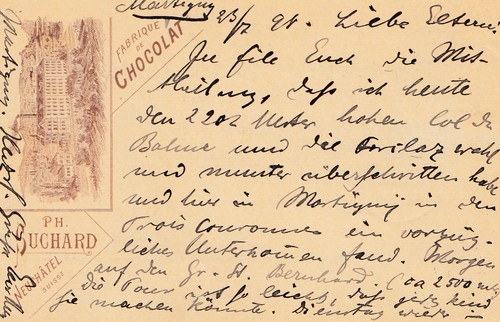 Martigny 23/7 98. Liebe Eltern!
In Eile Euch die Mit-
theilung, dass ich heute
den 2202 Meter hohen Col de
Balme und die Forclaz wohl
und munter überschritten habe
und hier in Martigny in den
Trois Couronnes ein vorzüg-
liches Unterkommen fand. Morgen
auf den Gr. St. Bernhard. (ca 2500 m)
die Tour ist so leicht, dass jedes Kind
sie machen könnte. Dienstag wieder in
Martigny. Herzl. Grüße
FABRIQUE
DE
CHOCOLAT
PH.
SUCHARD
NEUCHÂTEL
SUISSE